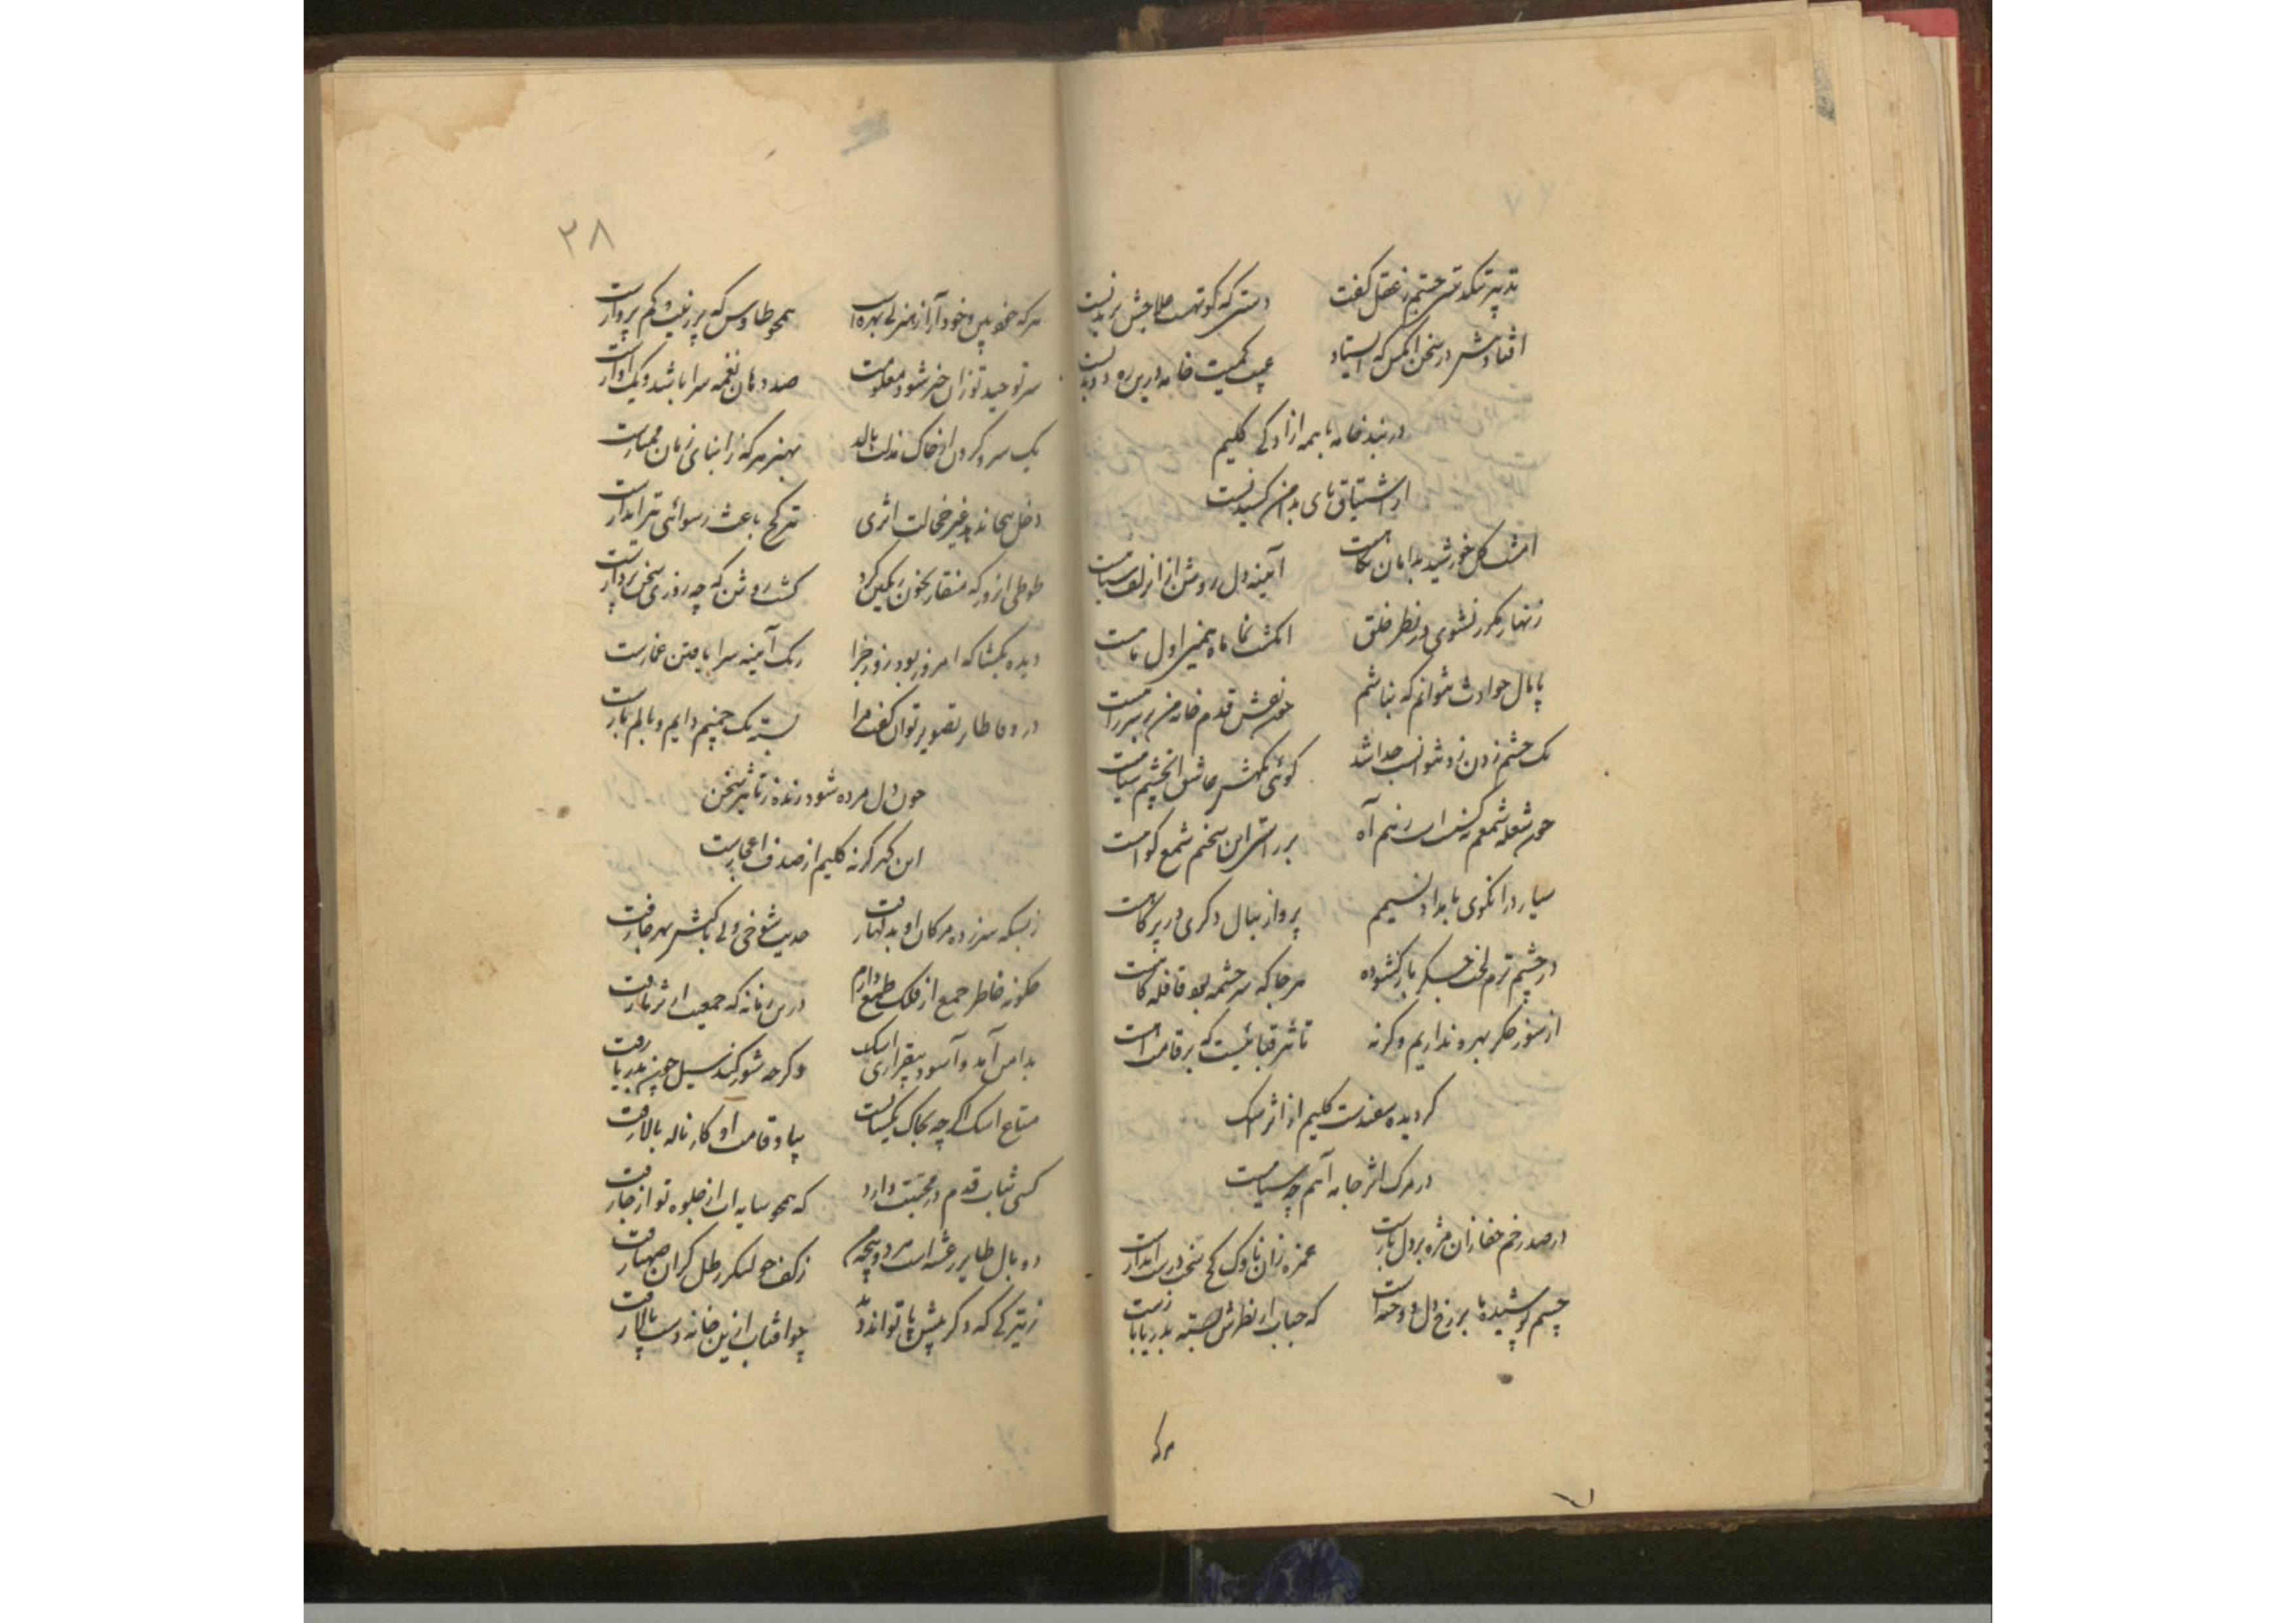 تدبیر تنکدستی جستم ز عقل گفت دستی که کوتهست علاجش بریدنست
افتادنش در سخن انکس که ایستاد عیب کمیت خامه درین ره دویدنست
در بند خانه با همه ازادکی کلیم
از اشتیاق پای بدامن کشیدنست
امشب گل خورشید بدامان نگاهست آیینه دل روشن از ان زلف سیاهست
زنهار مکرر نشوی در نظر خلق انکشت نما ماه همین اول ماهست
پامال حوادث نتوانم که نباشم چون نقش قدم خانه من بر سر راهست
یک چشم زدن زو نتوانست جدا شد گوئی نکهش عاشق ان چشم سیاهست
چون شعله شمعم نفس است زنم آه بر راستی این سخنم شمع گواهست
در چشم ترم لخت جگر بار گشوده هر جا که سر چشمه بود قافله گاهست
از سوز جگر بهره نداریم وگرنه تاثیر قبائیست که بر قامت آهست
گردیده سفیدست کلیم از اثر اشک
در مرگ اثر جامه آهم چه سیاهست
در صد زخم جفا زان مژه بر دل بارست غمزه زان ناوک کج سخت در ایذاست
چشم پوشیده ما بر رخ دل دوخته است که حباب ار نظرش بسته بدریا بازست
هرکه
۳۸
هرکه خودبین و خودآرا ز هنر بی بهره است همچو طاوس که پر زینت و کم پروازست
سر توحید تو زان خبر شود معلومت صد دهان نغمه سرا باشد و یک آوازست
یک سر و گردن از خاک مذلت بالد بهنر هرکه ز ابنای زمان ممتازست
دخل بیجا ندهد غیر خجالت اثری تیر کج باعث رسوائی تیراندازست
طوطی انروز که منقار بخون رنگین کرد گشت روشن که چه روزی سخن پردازست
دیده بگشا که امروز بود روز جزا رنگ آیینه سزا یافتن غمازست
در وفا طایر تصویر توان گفت مرا بسته یک چمنیم دایم و بالم بازست
چون دل مرده شود زنده ز تاثیر سخن
این گهر گرنه کلیم از صدف اعجازست
ز بسکه سر زده مژکان او بدلها رفت حدیث شوخی ولی باکیش بهر جا رفت
چگونه خاطر جمع از فلک طمع دارم درین زمانه که جمعیت از ثریا رفت
بدامن آمد و آسود بیقراری اشک اگرچه شور کند سیل چون بدریا رفت
متاع اشک اگرچه بخاک یکسانست بیاد قامت او کار ناله بالا رفت
کسی ثبات قدم در محبتت دارد که همچو سایه ات از جلوه تو از جا رفت
دو بال طایر رعشه است هر دو پنجه من ز کف چو لنگر رطل گران صهبا رفت
ز تیرگی که دگر پیش پا تواند دید چو افتاب ازین خانه دست بالا رفت